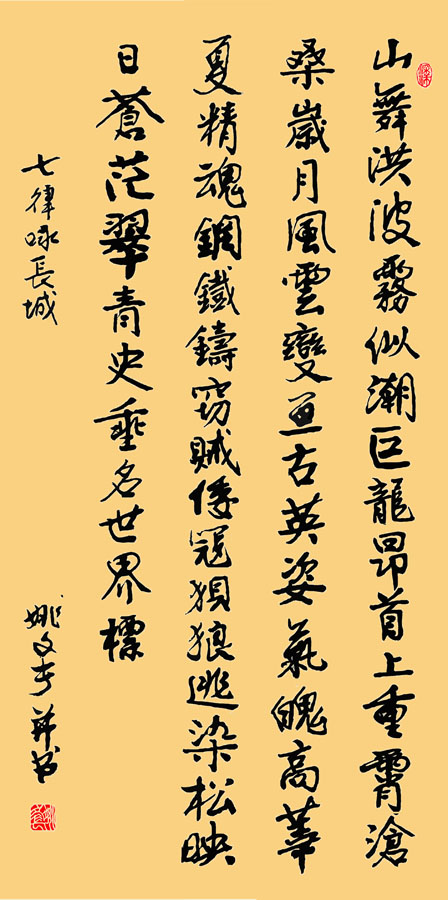 山舞洪波霧似潮巨龍昂首上重霄滄
桑歲月風雲變亘古英姿氣魄高華
夏精魂鋼鐵鑄窃賊倭冦狽狼逃染松映
日蒼茫翠青史垂名世界標
七律咏長城
姚文孝并书